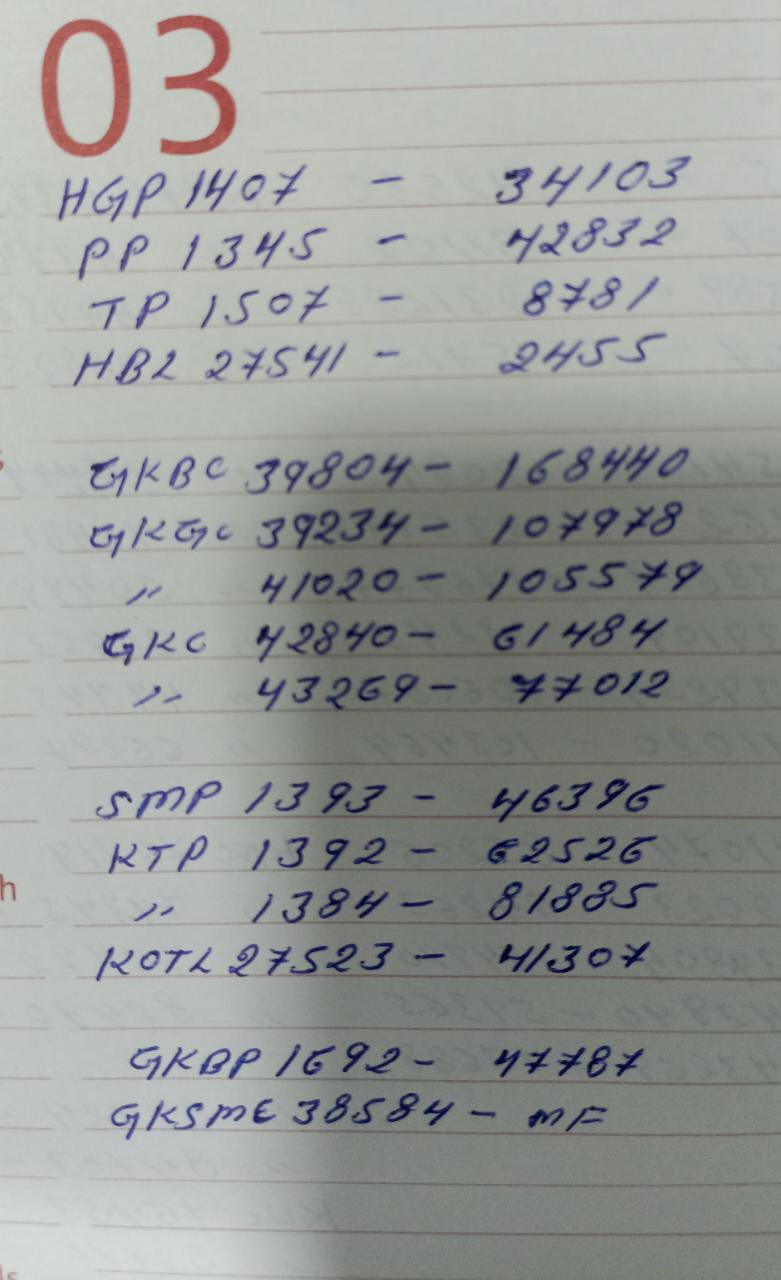 03
HGP 1407 - 34103
PP 1345 - 42832
TP 1507 - 8781
HBL 27541 - 2455
GKBC 39804 - 168440
GKGC 39234 - 107978
〃 41020 - 105579
GKC 42840 - 61484
〃 43269 - 77012
SMP 1393 - 46396
KTP 1392 - 62526
〃 1384 - 81885
KOTL 27523 - 41307
h
GKBP 1692 - 47787
GKSME 38584 - MF